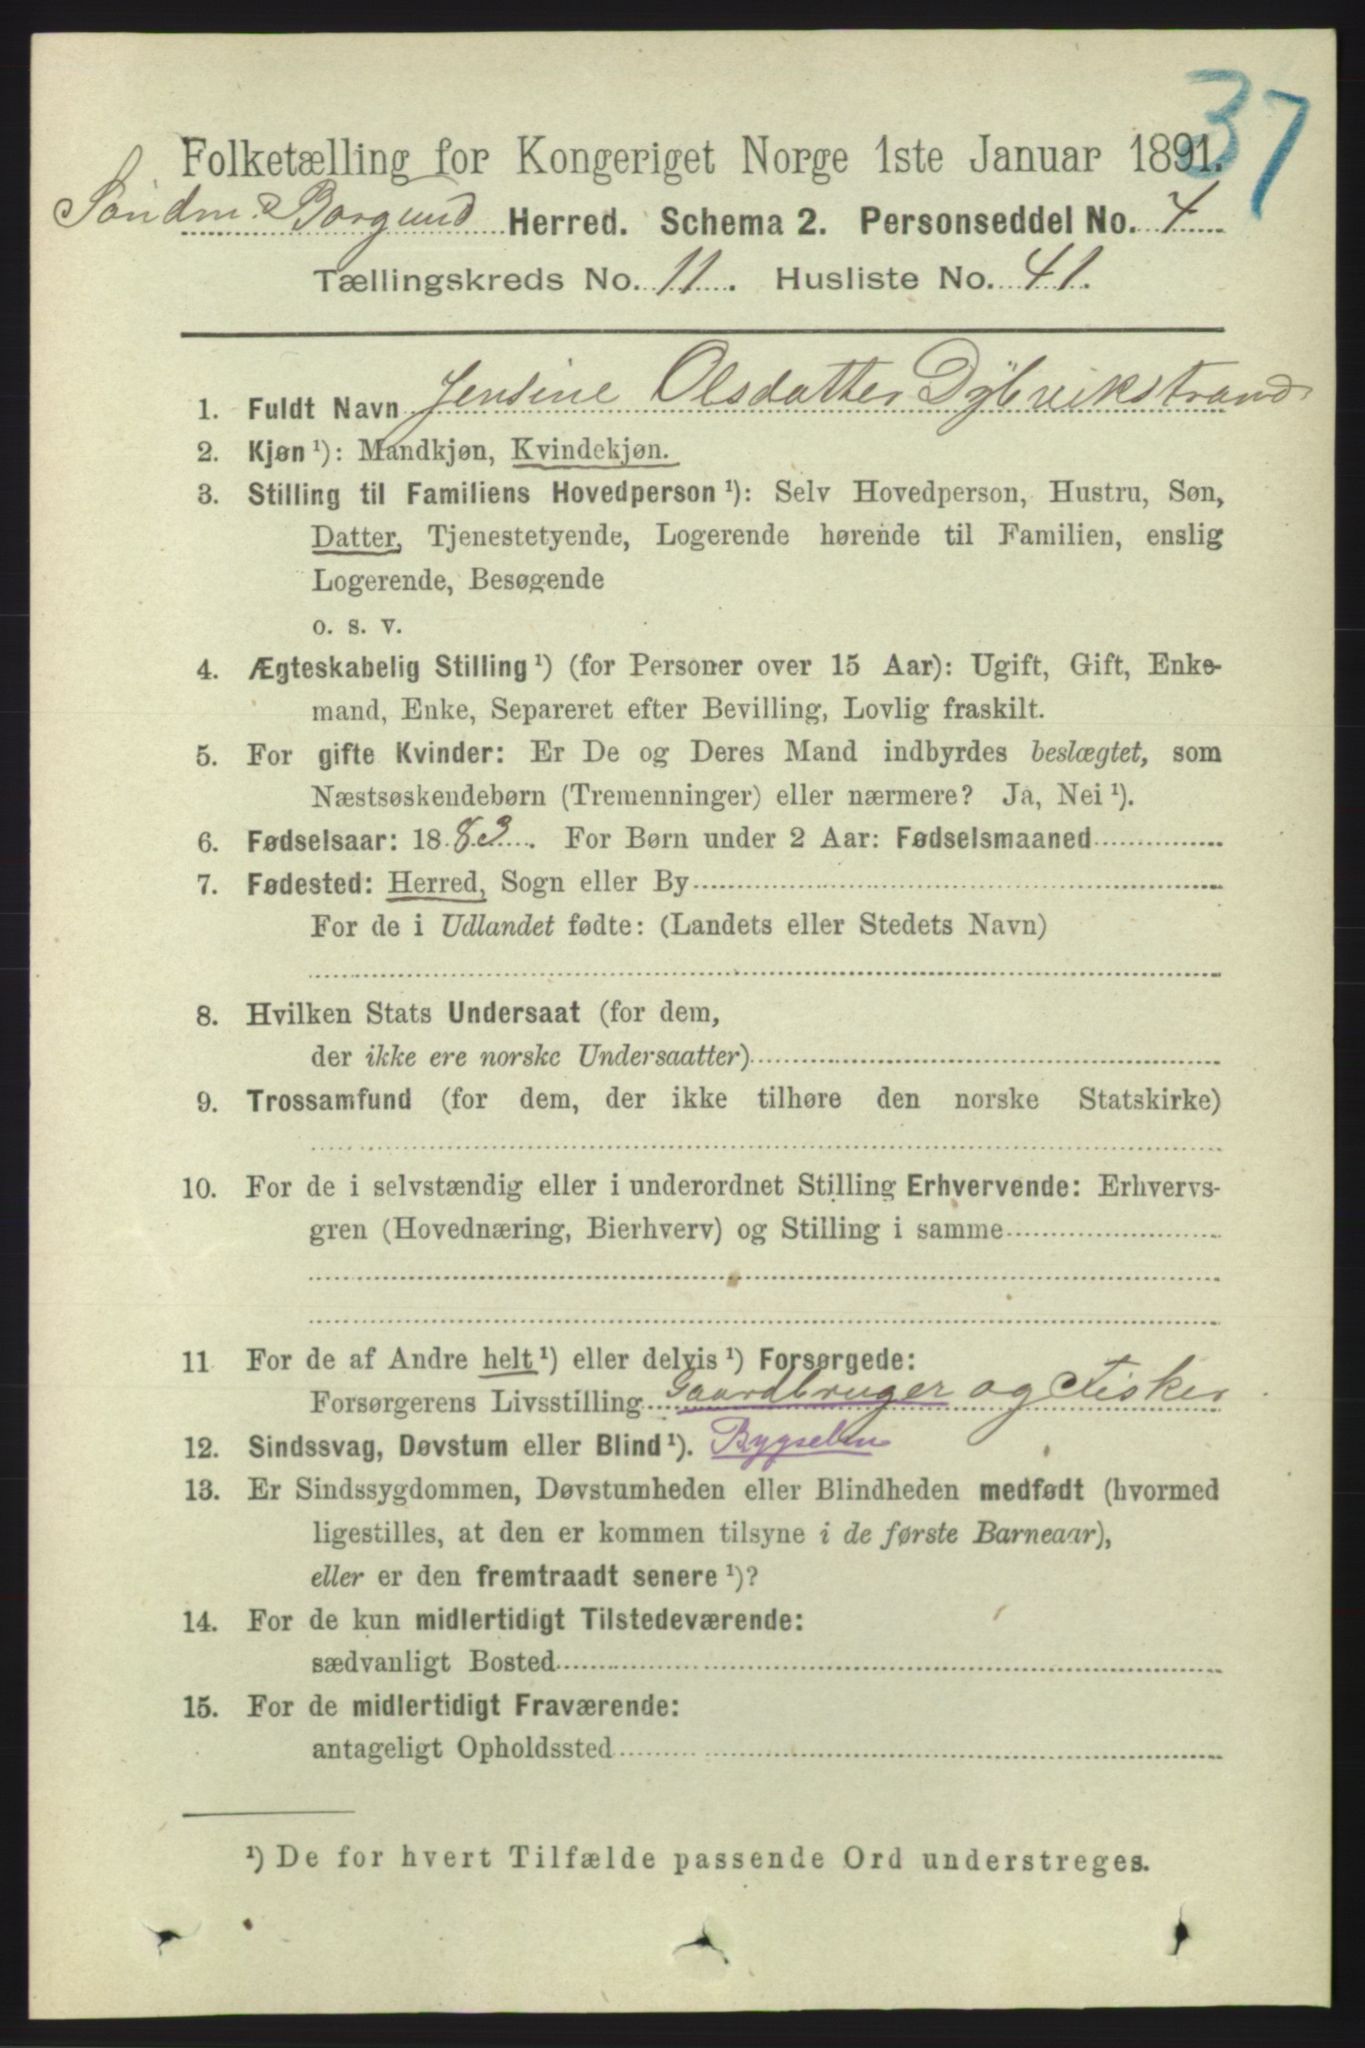 37
Folketælling for Kongeriget Norge 1ste Januar 1891.
Søndm. Borgund Herred. Schema 2. Personseddel No. 4
Tællingskreds No. 11. Husliste No. 41.
1. Fuldt Navn Jensine Olsdatter Dybvikstrand
2. Kjøn ¹): Mandkjøn, Kvindekjøn.
3. Stilling til Familiens Hovedperson ¹): Selv Hovedperson, Hustru, Søn,
Datter, Tjenestetyende, Logerende hørende til Familien, enslig
Logerende, Besøgende
o. s. v.
4. Ægteskabelig Stilling ¹) (for Personer over 15 Aar): Ugift, Gift, Enke-
mand, Enke, Separeret efter Bevilling, Lovlig fraskilt.
5. For gifte Kvinder: Er De og Deres Mand indbyrdes beslægtet, som
Næstsøskendebørn (Tremenninger) eller nærmere? Ja, Nei ¹).
6. Fødselsaar: 1883. For Børn under 2 Aar: Fødselsmaaned
7. Fødested: Herred, Sogn eller By
For de i Udlandet fødte: (Landets eller Stedets Navn)
8. Hvilken Stats Undersaat (for dem,
der ikke ere norske Undersaatter)
9. Trossamfund (for dem, der ikke tilhøre den norske Statskirke)
10. For de i selvstændig eller i underordnet Stilling Erhvervende: Erhvervs-
gren (Hovednæring, Bierhverv) og Stilling i samme
11 For de af Andre helt ¹) eller delvis ¹) Forsørgede:
Forsørgerens Livsstilling Gaardbruger og Fisker
12. Sindssvag, Døvstum eller Blind ¹). Bygselm
13. Er Sindssygdommen, Døvstumheden eller Blindheden medfødt (hvormed
ligestilles, at den er kommen tilsyne i de første Barneaar),
eller er den fremtraadt senere ¹)?
14. For de kun midlertidigt Tilstedeværende:
sædvanligt Bosted
15. For de midlertidigt Fraværende:
antageligt Opholdssted
¹) De for hvert Tilfælde passende Ord understreges.